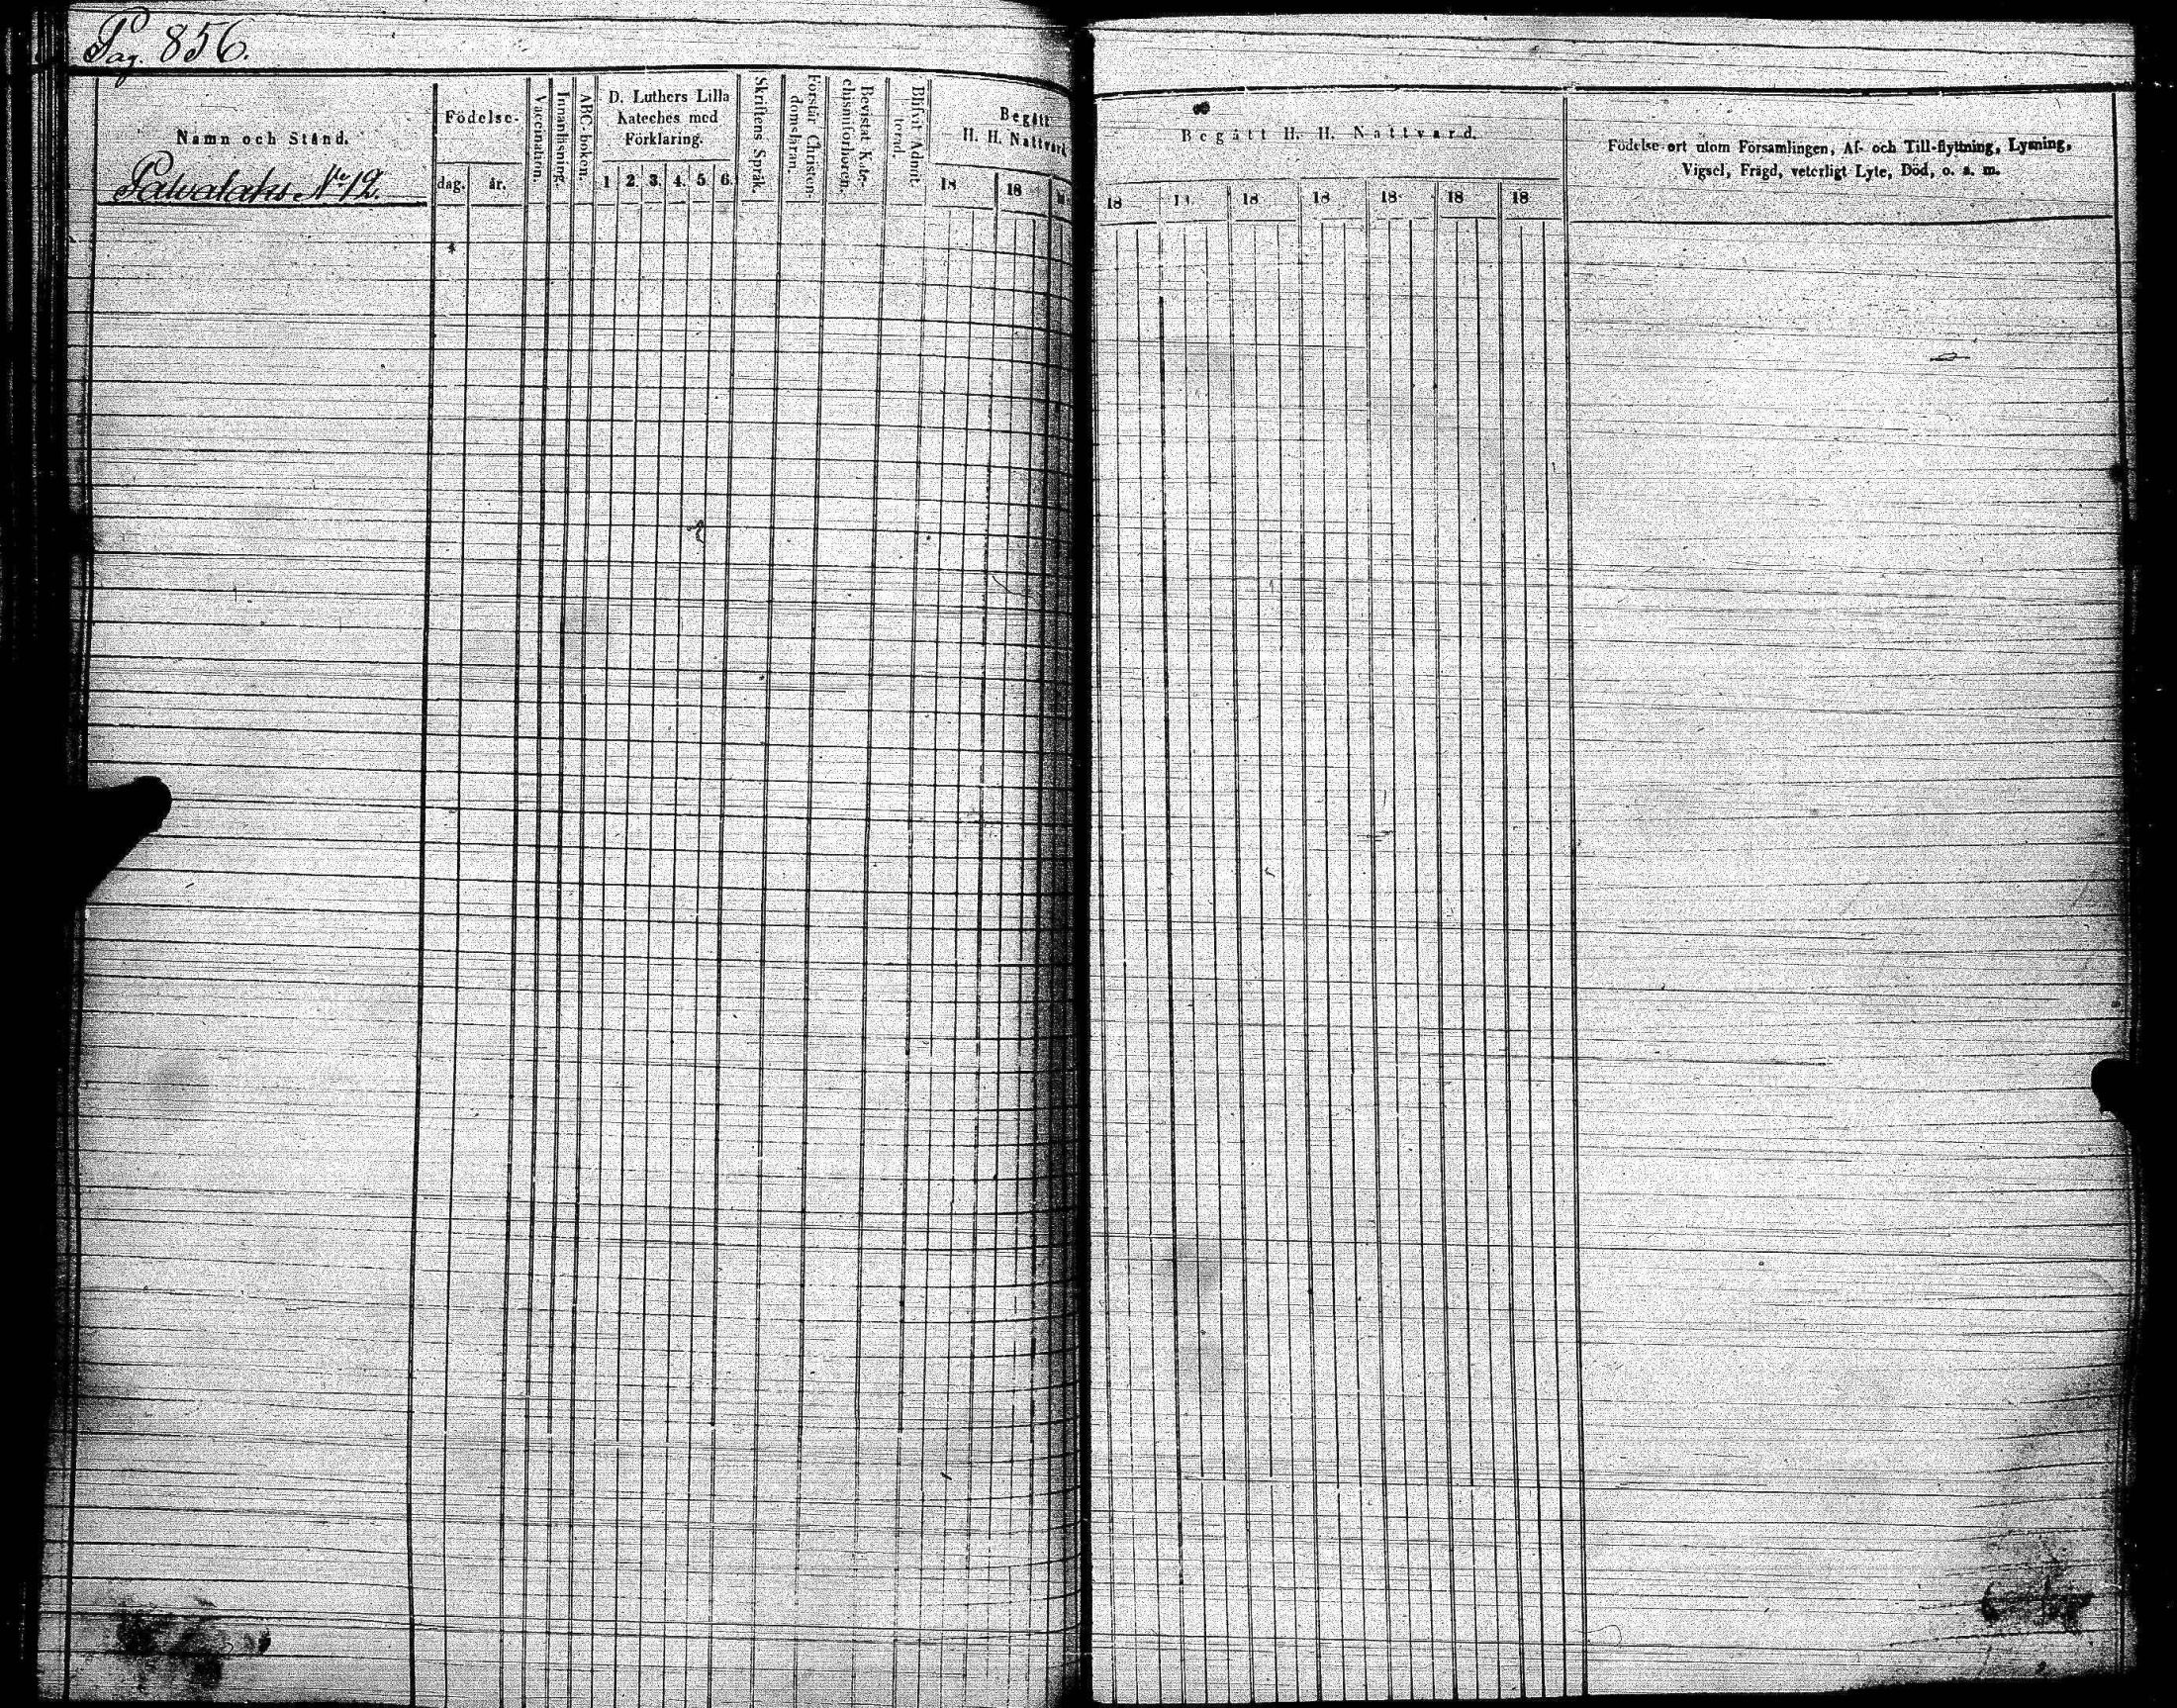 Pag. 856.
Namn och Stånd.
Palvalaks No 12.
Födelse-
dag.
år.
Vaccination.
Innanläsning.
ABC-boken.
D. Luthers Lilla
Kateches med
Förklaring.
1 2. 3. 4. 5 6.
Skriftens Språk.
Förstår Christen-
domsläran.
Bevistat Kate-
chismiförhören.
Blifvit Admit-
terad.
Begått
H. H. Nattvard
18 18
Begått H. H. Nattvard.
18 18 18 18 18 18 18
Födelse-ort utom Församlingen, Af- och Till-flyttning, Lysning,
Vigsel, Frägd, veterligt Lyte, Död, o. s. m.